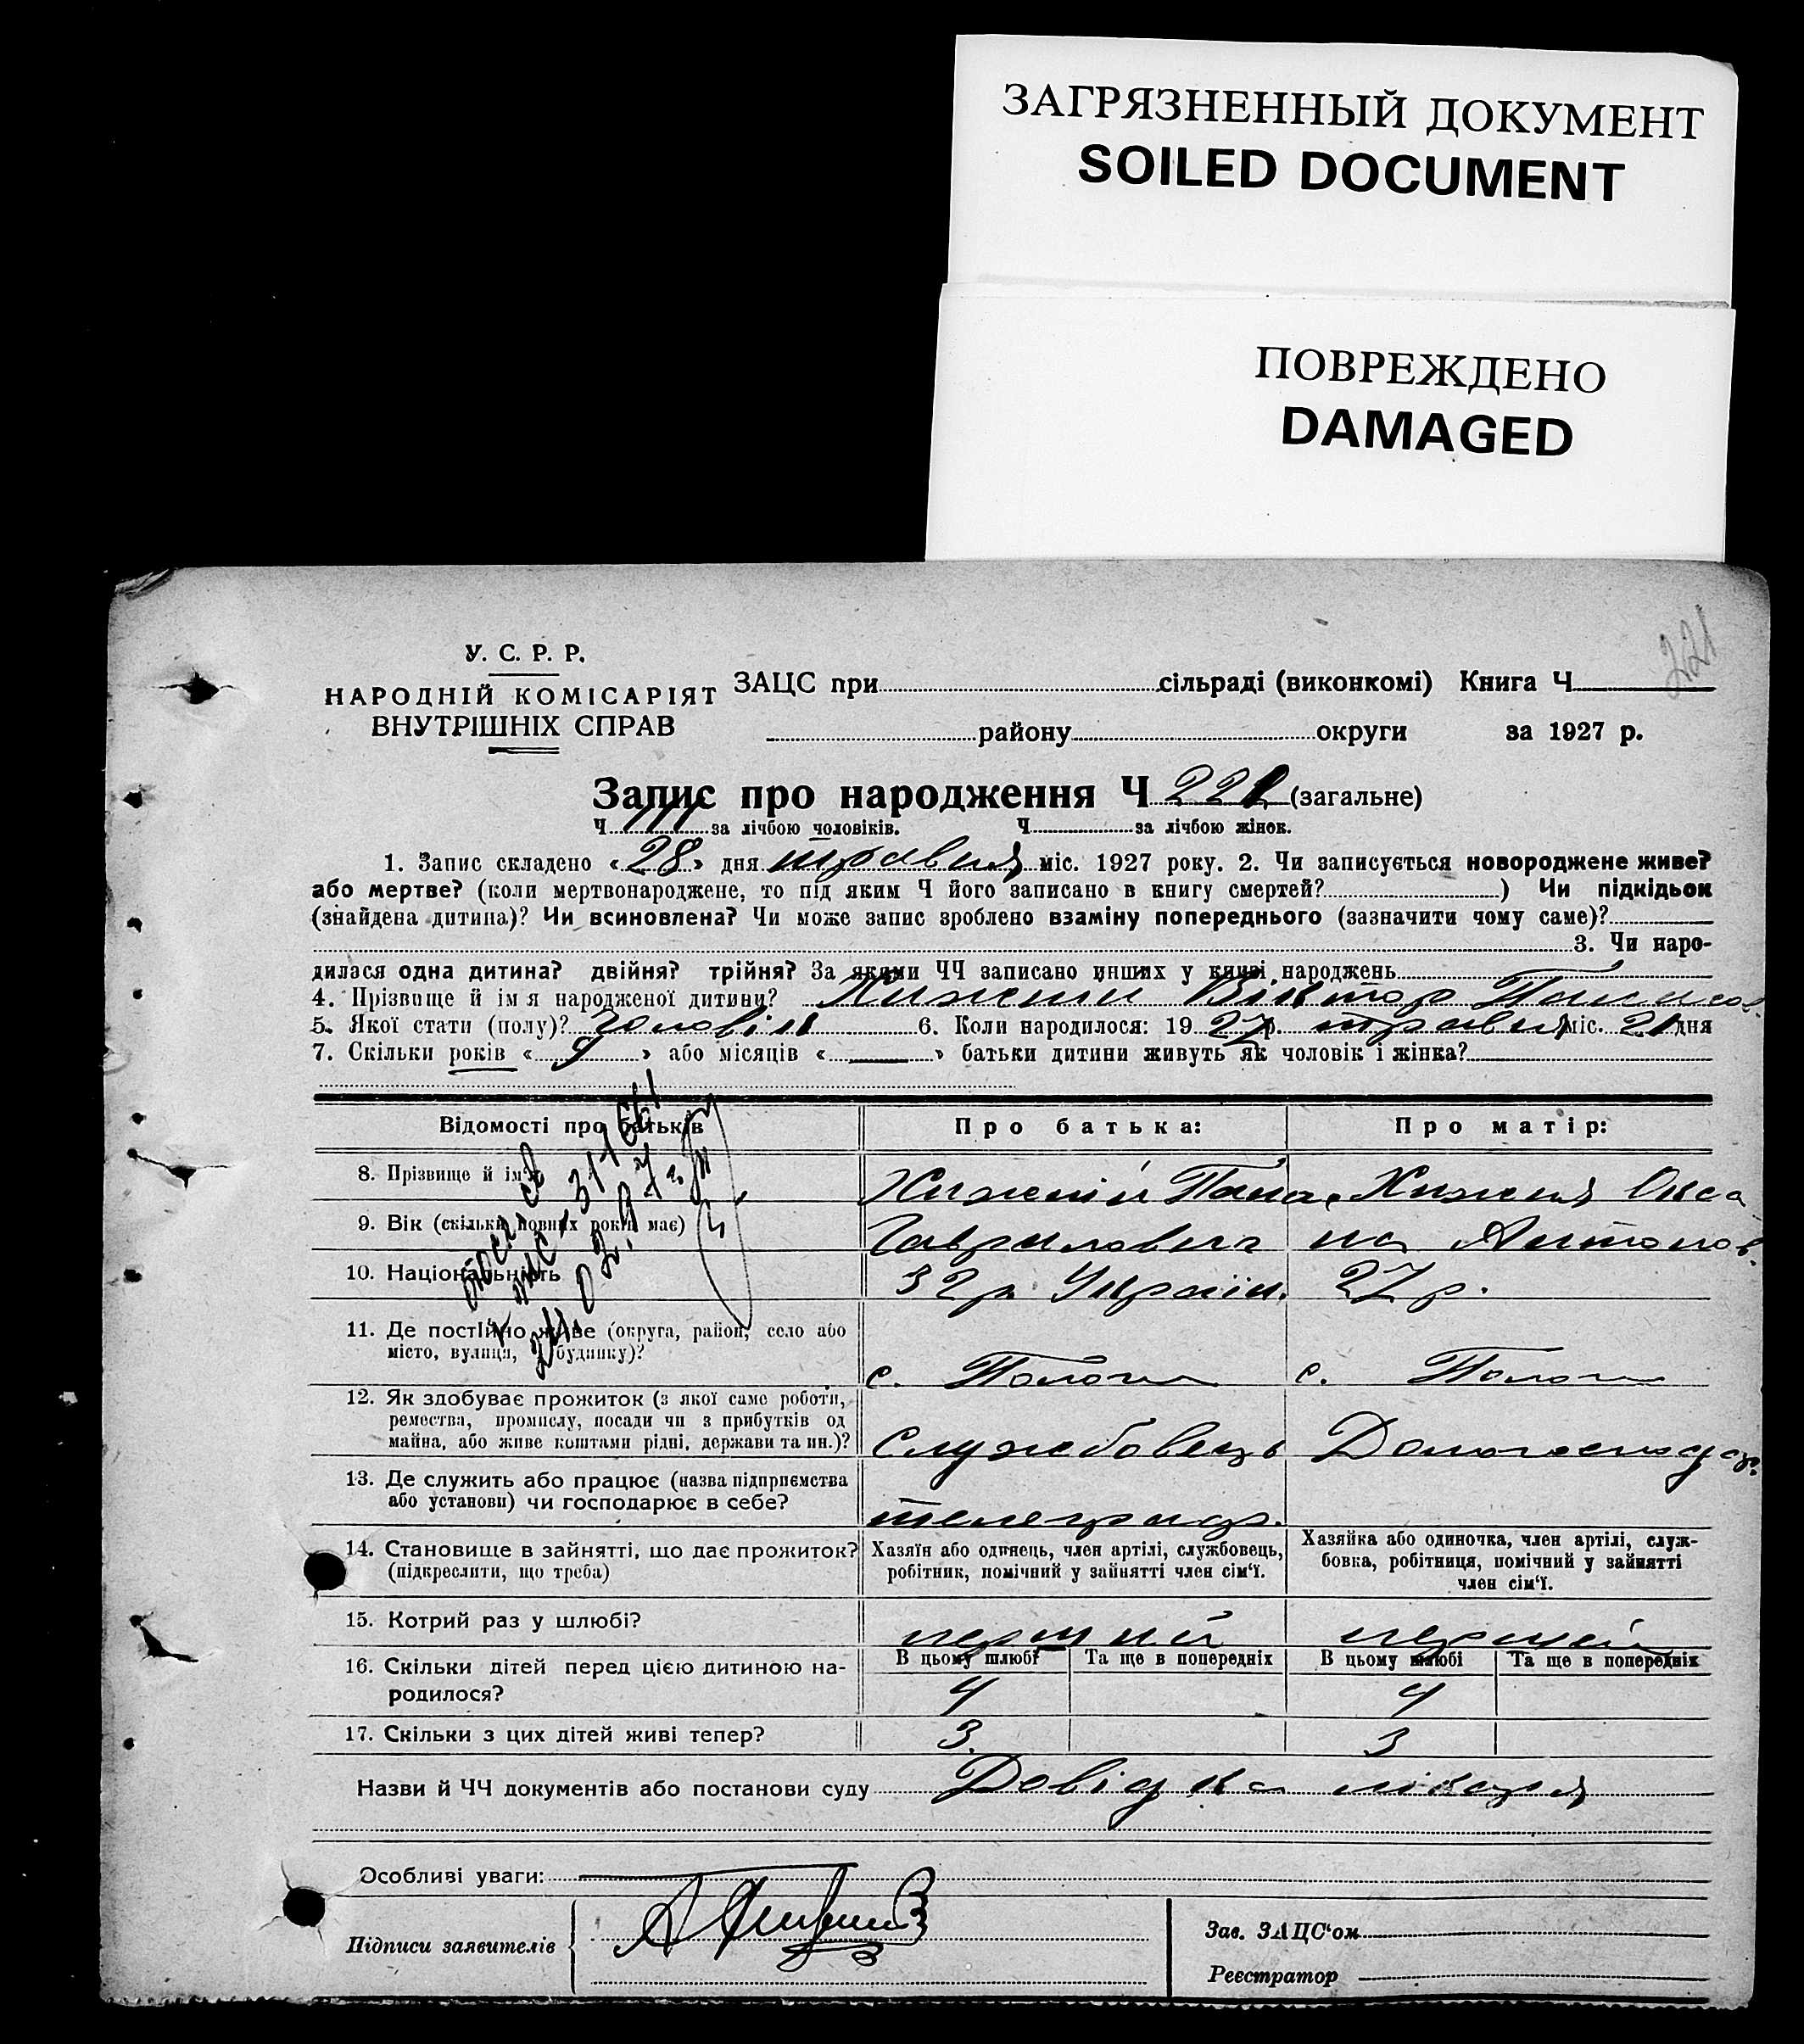 ЗАГРЯЗНЕННЫЙ ДОКУМЕНТ
SOILED DOCUMENT
ПОВРЕЖДЕНО
DAMAGED
221
У. С. Р. Р.
НАРОДНІЙ КОМІСАРІЯТ
ВНУТРІШНІХ СПРАВ
ЗАЦС при сільраді (виконкомі) Книга Ч.
району округи за 1927 р.
Запис про народження Ч 221 (загальне)
Ч. 111 за лічбою чоловіків. Ч. за лічбою жінок.
1. Запис складено «28» дня травня міс. 1927 року. 2. Чи записується новороджене живе?
або мертве? (коли мертвонароджене, то під яким Ч його записано в книгу смертей?) Чи підкідьок
(знайдена дитина)? Чи всиновлена? Чи може запис зроблено взаміну попереднього (зазначити чому саме)?
3. Чи наро-
дилася одна дитина? двійня? трійня? За якими ЧЧ записано инших у книзі народжень
4. Прізвище й ім'я народженої дитини? Нижній Віктор Панасов.
5. Якої стати (полу)? Чоловік 6. Коли народилося: 1927 р. травня міс. 21 дня
7. Скільки років «9» або місяців «—» батьки дитини живуть як чоловік і жінка?
Відомості про батьків Про батька: Про матір:
8. Прізвище й ім'я Нижній Пана Нижня Окса
9. Вік (скільки повних років має) Гаврилович на Антонов.
10. Національність 32 р. Україн. 27 р.
11. Де постійно живе (округа, район, село або
місто, вулиця, будинку)? с. Пологи с. Пологи
12. Як здобуває прожиток (з якої саме роботи,
ремества, промислу, посади чи з прибутків од
майна, або живе коштами рідні, держави та ин.)? Службовець Домогосподар.
13. Де служить або працює (назва підприємства
або установи) чи господарює в себе? телеграф.
14. Становище в зайнятті, що дає прожиток?
(підкреслити, що треба)
Хазяїн або одинець, член артілі, службовець,
робітник, помічний у зайнятті член сім'ї.
Хазяйка або одиночка, член артілі, служ-
бовка, робітниця, помічний у зайнятті
член сім'ї.
15. Котрий раз у шлюбі? перший перший
В цьому шлюбі Та ще в попередніх В цьому шлюбі Та ще в попередніх
16. Скільки дітей перед цією дитиною на-
родилося? 4 4
17. Скільки з цих дітей живі тепер? 3 3
Назви й ЧЧ документів або постанови суду Довідка лікаря
Особливі уваги:
Підписи заявителів
Зав. ЗАЦС'ом
Реєстратор